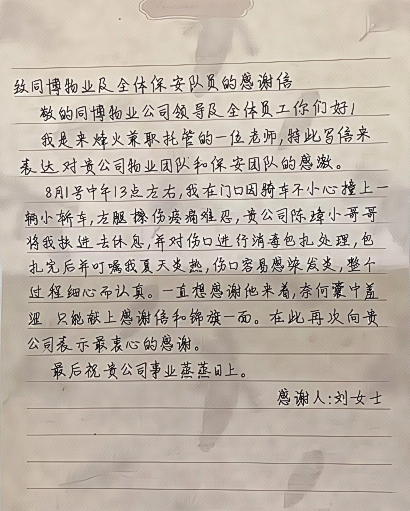 致同博物业及全体保安队员的感谢信
敬的同博物业公司领导及全体员工你们好!
我是来烽火兼职托管的一位老师,特此写信来
表达对贵公司物业团队和保安团队的感激。
8月1号中午13点左右,我在门口因骑车不小心撞上一
辆小轿车,左腿擦伤疼痛难忍,贵公司陈璋小哥哥
将我扶进去休息,并对伤口进行消毒包扎处理,包
扎完后并叮嘱我夏天炎热,伤口容易感染发炎,整个
过程细心而认真。一直想感谢他来着,奈何囊中羞
涩 只能献上感谢信和锦旗一面。在此再次向贵
公司表示最衷心的感谢。
最后祝贵公司事业蒸蒸日上。
感谢人:刘女士